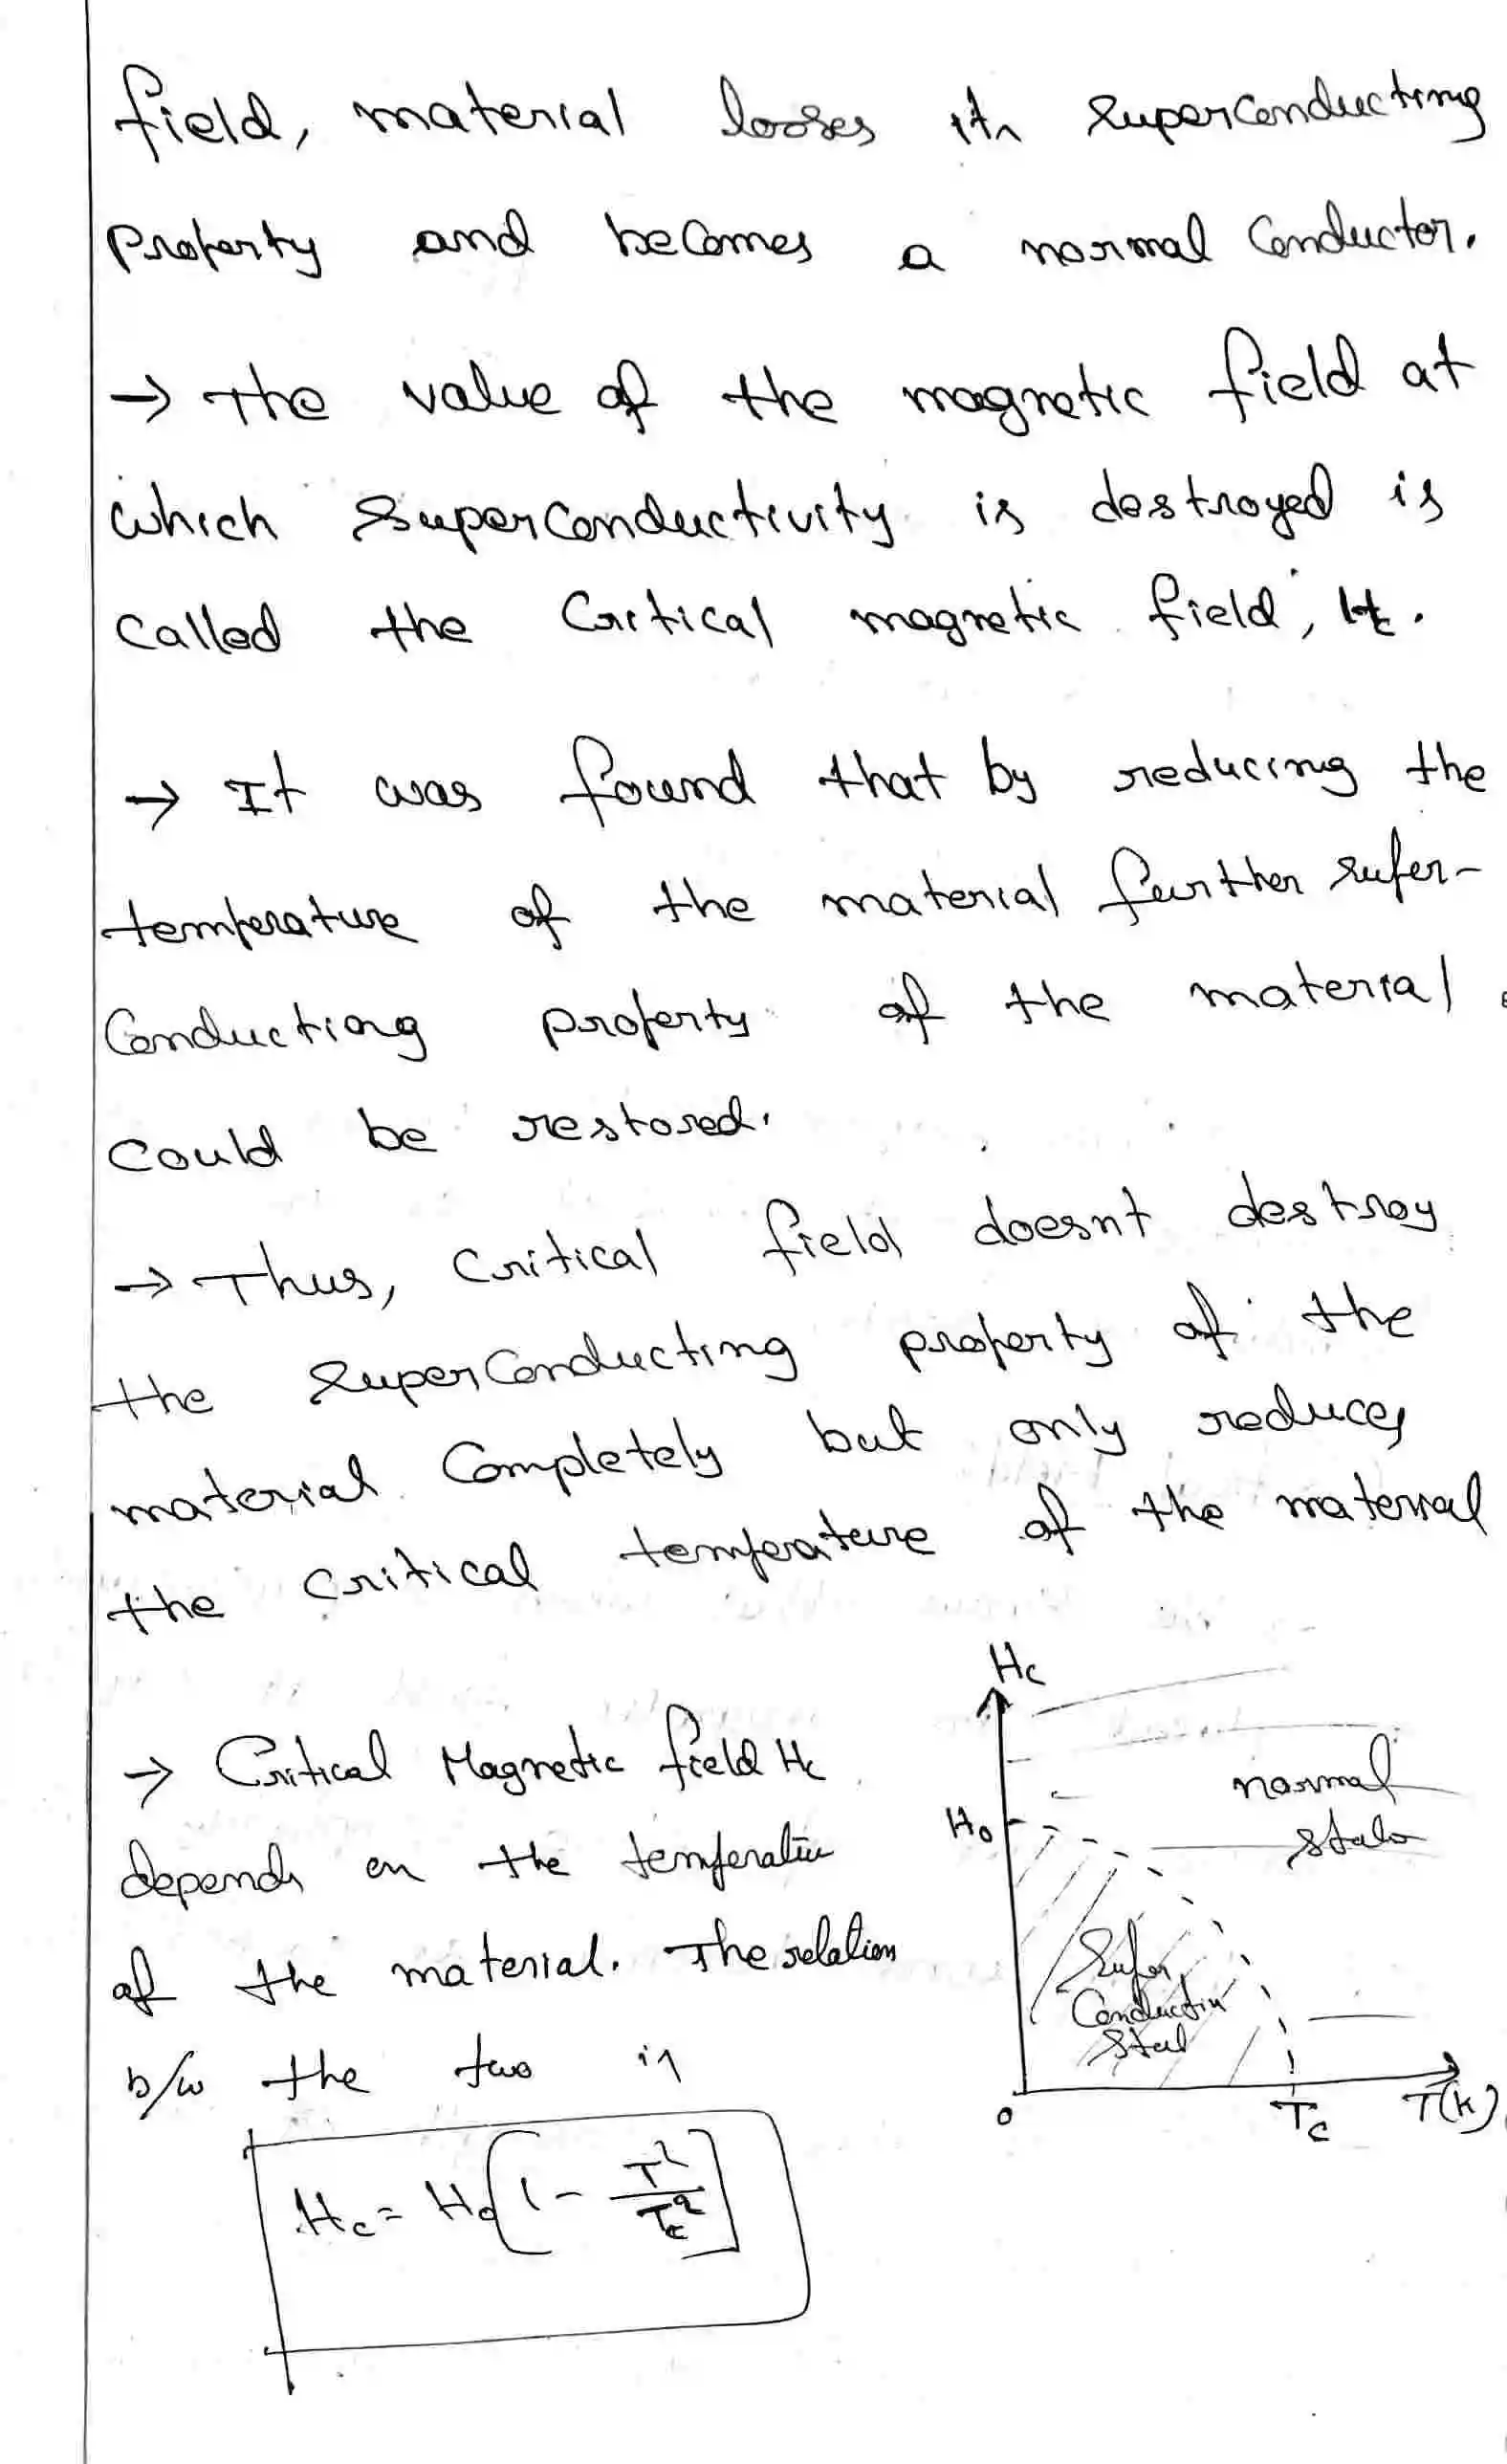 field, material looses its superconducting
property and becomes a normal conductor.
→ The value of the magnetic field at
which superconductivity is destroyed is
called the critical magnetic field, Hc.
→ It was found that by reducing the
temperature of the material further super-
conducting property of the material
could be restored.
→ Thus, critical field doesnt destroy
the superconducting property of the
material completely but only reduces
the critical temperature of the material
→ Critical Magnetic field Hc
depends on the temperature
of the material. The relation
b/w the two is
Hc = H₀[1 - T²/Tc²]
Hc
H₀
normal
state
Super
Conducting
State
0
Tc
T(K)